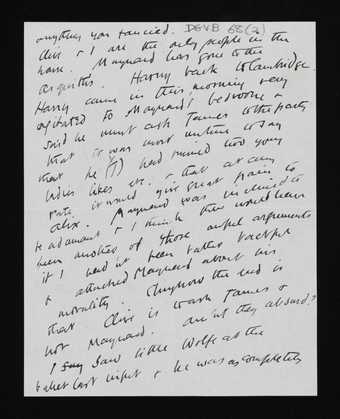 anything you fancied. DGVB 68 (2)
Clive & I are the only people in the
house. Maynard has gone to the
Asquiths. Harry back to Cambridge.
Harry came in this morning very
agitated to Maynard's bedroom &
said he must ask James to the party
that it was most unkind to say
that he (J) had ruined two young
ladies likes etc. & that at any
rate it would give great pain to
Alix. Maynard was inclined to
be adamant & I think there would have
been another of those awful arguments
if I hadn't been rather tactful
& attacked Maynard about his
morality. Anyhow the end is
that Clive is to ask James &
not Maynard. Aren't they absurd?
I saw little Wolfe at the
ballet last night & he was as completely